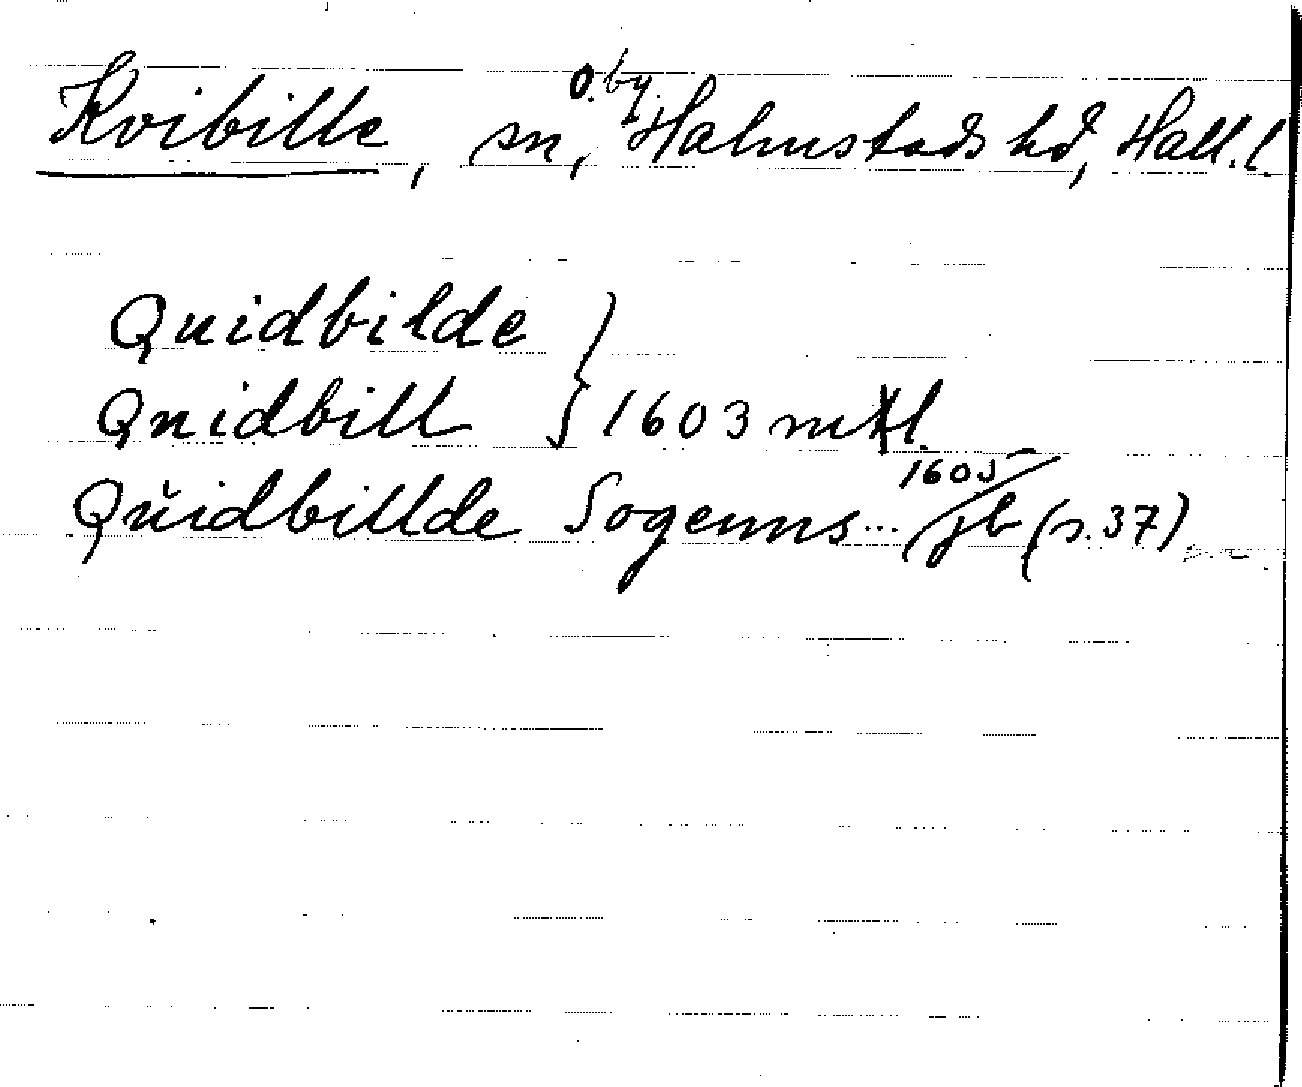 Kvibille, sn, o. by. Halmstads hd, Hall. l.
Quidbilde
Quidbill } 1603 mtl.
Qŭidbillde Sogenns... 1605 jb (s. 37)